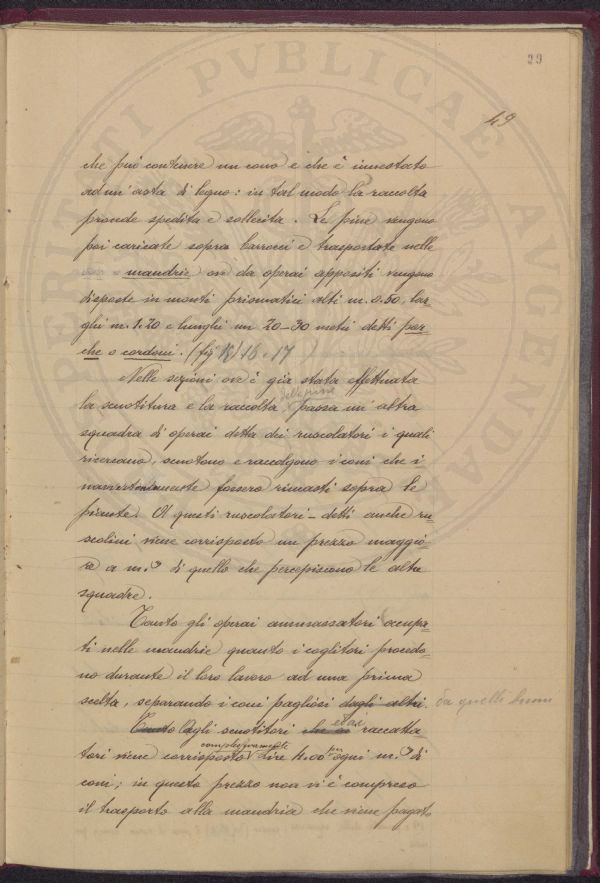 29
49
che può contenere un cono e che è innestato
ad un' asta di legno: in tal modo la raccolta
procede spedita e sollecita. Le pine vengono
poi caricate sopra barrocci e trasportate nelle
mandrie ove da operai appositi vengono
disposte in monti prismatici alti m. 0.50, lar-
ghi m. 1.20 e lunghi un 20-30 metri detti por-
che o cordoni. (fig 16 e 17 )
Nelle sezioni ove è già stata effettuata
la scuotitura e la raccolta delle pine passa un' altra
squadra di operai detta dei ruscolatori i quali
ricercano, scuotono e raccolgono i coni che i
navvertentemente fossero rimasti sopra le
piante. A questi ruscolatori - detti anche ru-
scolini viene corrisposto un prezzo maggio-
re a m.³ di quello che percepiscono le altre
squadre.
Tanto gli operai ammassatori occupa-
ti nelle mandrie quanto i coglitori procedo-
no durante il loro lavoro ad una prima
scelta, separando i coni pagliosi dagli altri. da quelli buoni
Tanto Agli scuotitori che ai ed ai raccatta-
tori viene corrisposto complessivamente lire 4.00 per ogni m.³ di
coni; in questo prezzo non vi è compreso
il trasporto alla mandria che viene pagato